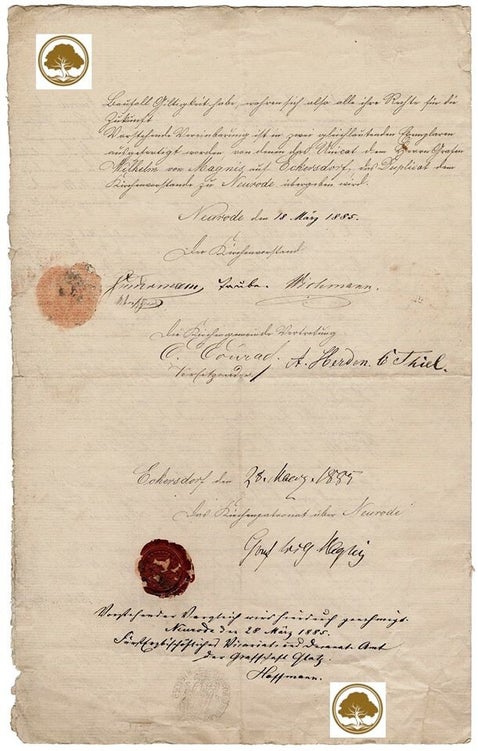 Baufall Gültigkeit habe, wahren sich also alle ihre Rechte für die
Zukunft
Vorstehende Vereinbarung ist in zwei gleichlautenden Exemplaren
ausgefertigt worden von denen das Unicat dem Herrn Grafen
Wilhelm von Magnis auf Eckersdorf, das Duplicat dem
Kirchenvorstande zu Neurode übergeben wird.
Neurode den 18 März 1885.
Der Kirchenvorstand
Taube. Wichmann.
Die Kirchengemeinde Vertretung
C. Conrad. A. Herden. C Thiel.
Vorsitzender
Eckersdorf den 28. Maerz 1885
Das Kirchenpatronat über Neurode
Graf Wilh Magnis
Vorstehender Vergleich wird hierdurch genehmigt.
Neurode den 28 März 1885.
Fürsterzbischöfliches Vicariat und Decanat-Amt
der Grafschaft Glatz.
Hoffmann.